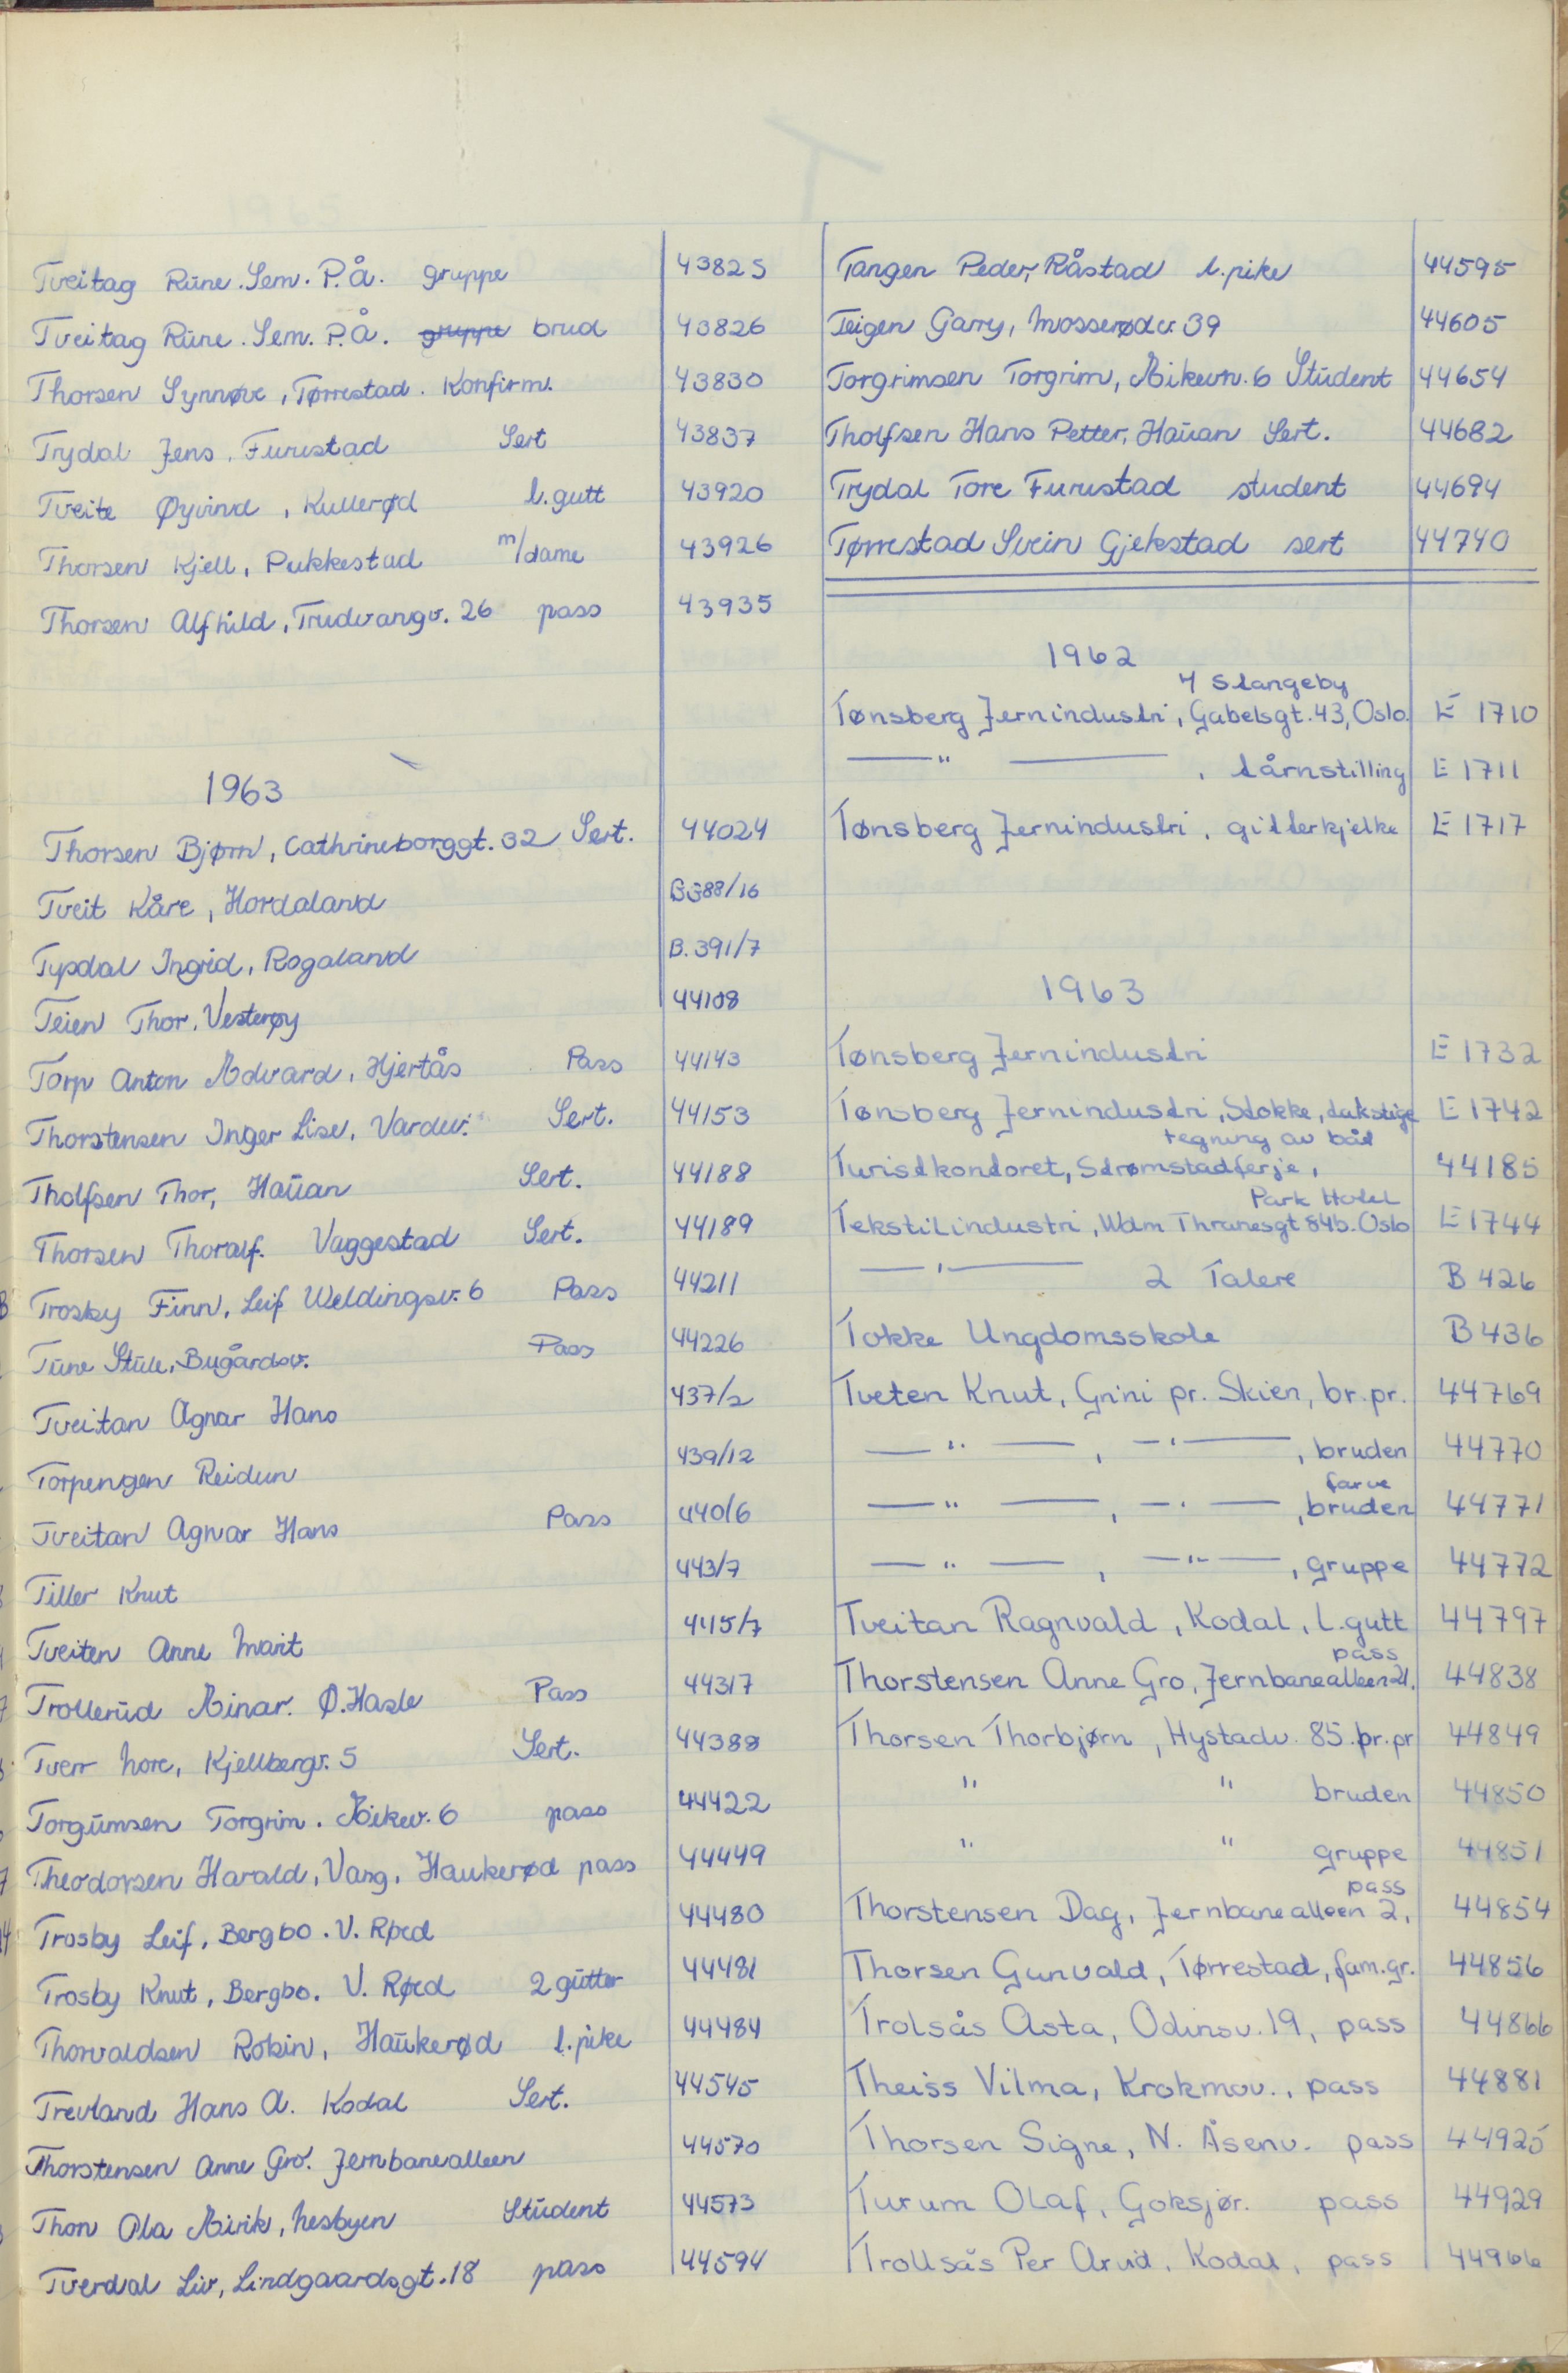 Tveitag Rune. Sem. P.Å. gruppe 43825
Tveitag Rune. Sem. P.Å. gruppe brud 43826
Thorsen Synnøve, Tørrestad. Konfirm. 43830
Trydal Jens, Furustad Sert 43837
Tveite Øyvind, Kullerød l.gutt 43920
Thorsen Kjell, Pukkestad m/dame 43926
Thorsen Alfhild, Trudvangv. 26 pass 43935
1963
Thorsen Bjørn, Cathrineborggt. 32 Sert. 44024
Tveit Kåre, Hordaland B388/16
Typdal Ingrid, Rogaland B.391/7
Teien Thor, Vesterøy 44108
Torp Anton Edvard, Hjertås Pass 44143
Thorstensen Inger Lise, Vardev. Sert. 44153
Tholfsen Thor, Hauan Sert. 44188
Thorsen Thoralf. Vaggestad Sert. 44189
Trosby Finn, Leif Weldingsv. 6 Pass 44211
Tune Ståle, Bugårdsv. Pass 44226
Tveitan Agnar Hans 437/2
Torpengen Reidun 439/12
Tveitan Agnar Hans Pass 440/6
Tiller Knut 443/7
Tveiten Anne Marit 445/7
Trollerud Einar. Ø. Hasle Pass 44317
Tverr Nore, Kjellbergv. 5 Sert. 44388
Torgrimsen Torgrim. Eikev. 6 pass 44422
Theodorsen Harald, Vang, Haukerød pass 44449
Trosby Leif, Bergbo. V. Røed 44480
Trosby Knut, Bergbo. V. Røed 2 gutter 44481
Thorvaldsen Robin, Haukerød l.pike 44484
Trevland Hans A. Kodal Sert. 44545
Thorstensen Anne Gro. Jernbanealleen 44570
Thon Ola Eirik, Nesbyen Student 44573
Tverdal Liv, Lindgaardsgt. 18 pass 44594
Tangen Peder, Råstad l.pike 44595
Teigen Garry, Mosserødv. 39 44605
Torgrimsen Torgrim, Eikevn. 6 Student 44654
Tholfsen Hans Petter, Hauan Sert. 44682
Trydal Tore Furustad student 44694
Tørrestad Svein Gjekstad sert 44740
1962
4 Slangeby
Tønsberg Jernindustri, Gabelsgt. 43, Oslo. E 1710
—"— , tårnstilling E 1711
Tønsberg Jernindustri, gitterkjelke E 1717
1963
Tønsberg Jernindustri E 1732
Tønsberg Jernindustri, Stokke, takstige E 1742
tegning av båt
Turistkontoret, Strømstadferje, 44185
Park Hotel
Tekstilindustri, Wdm Thranesgt 84b. Oslo E 1744
—"— 2 Talere B 426
Tokke Ungdomsskole B 436
Tveten Knut, Grini pr. Skien, br.pr. 44769
—"—, —"—, bruden 44770
farve
—"—, —"—, bruden 44771
—"—, —"—, gruppe 44772
Tveitan Ragnvald, Kodal, l.gutt 44797
pass
Thorstensen Anne Gro, Jernbanealleen 21. 44838
Thorsen Thorbjørn, Hystadv. 85. br.pr 44849
" " bruden 44850
" " gruppe 44851
pass
Thorstensen Dag, Jernbanealleen 2, 44854
Thorsen Gunvald, Tørrestad, fam.gr. 44856
Trolsås Asta, Odinsv. 19, pass 44866
Theiss Vilma, Krokmov., pass 44881
Thorsen Signe, N. Åsenv. pass 44925
Turum Olaf, Goksjør. pass 44929
Trollsås Per Arvid, Kodal, pass 44966